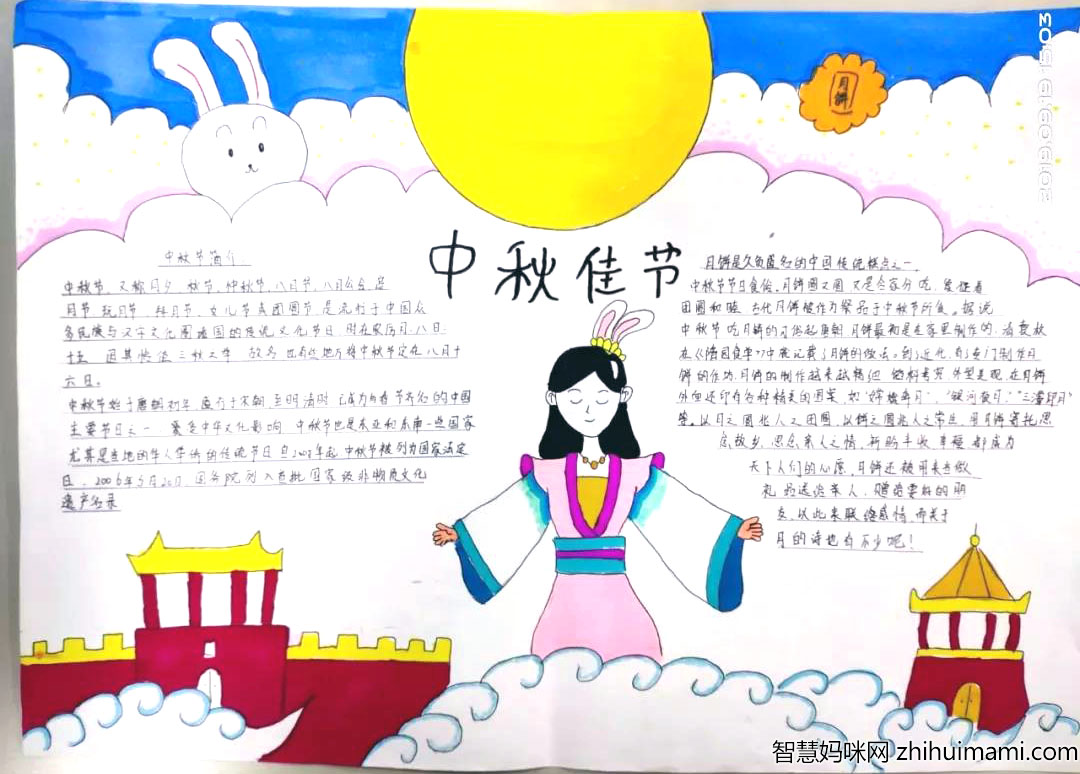 月饼
2019.09.19 15:03
中秋佳节
中秋节简介
中秋节，又称月夕、秋节、仲秋节、八月节、八月会、追
月节、玩月节、拜月节、女儿节或团圆节，是流行于中国众
多民族与汉字文化圈诸国的传统文化节日，时在农历八月
十五，因其恰值三秋之半，故名，也有些地方将中秋节定在八月十
六日。
中秋节始于唐朝初年，盛行于宋朝，至明清时，已成为与春节齐名的中国
主要节日之一。受中华文化影响，中秋节也是东亚和东南亚一些国家
尤其是当地的华人华侨的传统节日。自2008年起中秋节被列为国家法定
日。2006年5月20日，国务院列入首批国家级非物质文化
遗产名录
月饼是久负盛名的中国传统糕点之一，
中秋节节日食俗。月饼圆又圆，又是合家分吃，象征着
团圆和睦。古代月饼被作为祭品于中秋节所食。据说
中秋节吃月饼的习俗起唐朝。月饼最初是在家里制作的，清袁枚
在《隋园食单》中就记载了月饼的做法。到了近代，有了专门制作月
饼的作坊，月饼的制作越来越精细，馅料考究，外型美观，在月饼
外面还印有各种精美的图案，如“嫦娥奔月”、“银河夜月”、“三潭印月”
等。以月之圆兆人之团圆，以饼之圆兆人之常生，用月饼寄托思
念故乡，思念亲人之情，祈盼丰收、幸福，都成为
天下人们的心愿，月饼还被用来当做
礼品送给亲人，赠给要好的朋
友，以此来联络感情，而关于
月的诗也有不少呢！
智慧妈咪网 zhihuimami.com